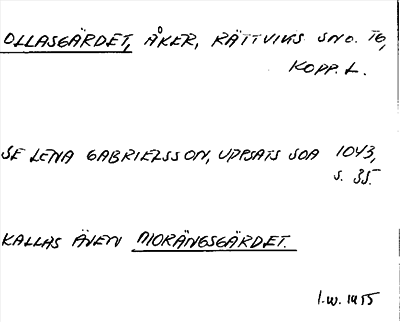 OLLASGÄRDET, ÅKER, RÄTTVIKS SND. TG,
KOPP. L.
SE LENA GABRIELSSON, UPPSATS SOA 1043,
s. 35.
KALLAS ÄVEN MORÄNGSGÄRDET.
I.W. 1955